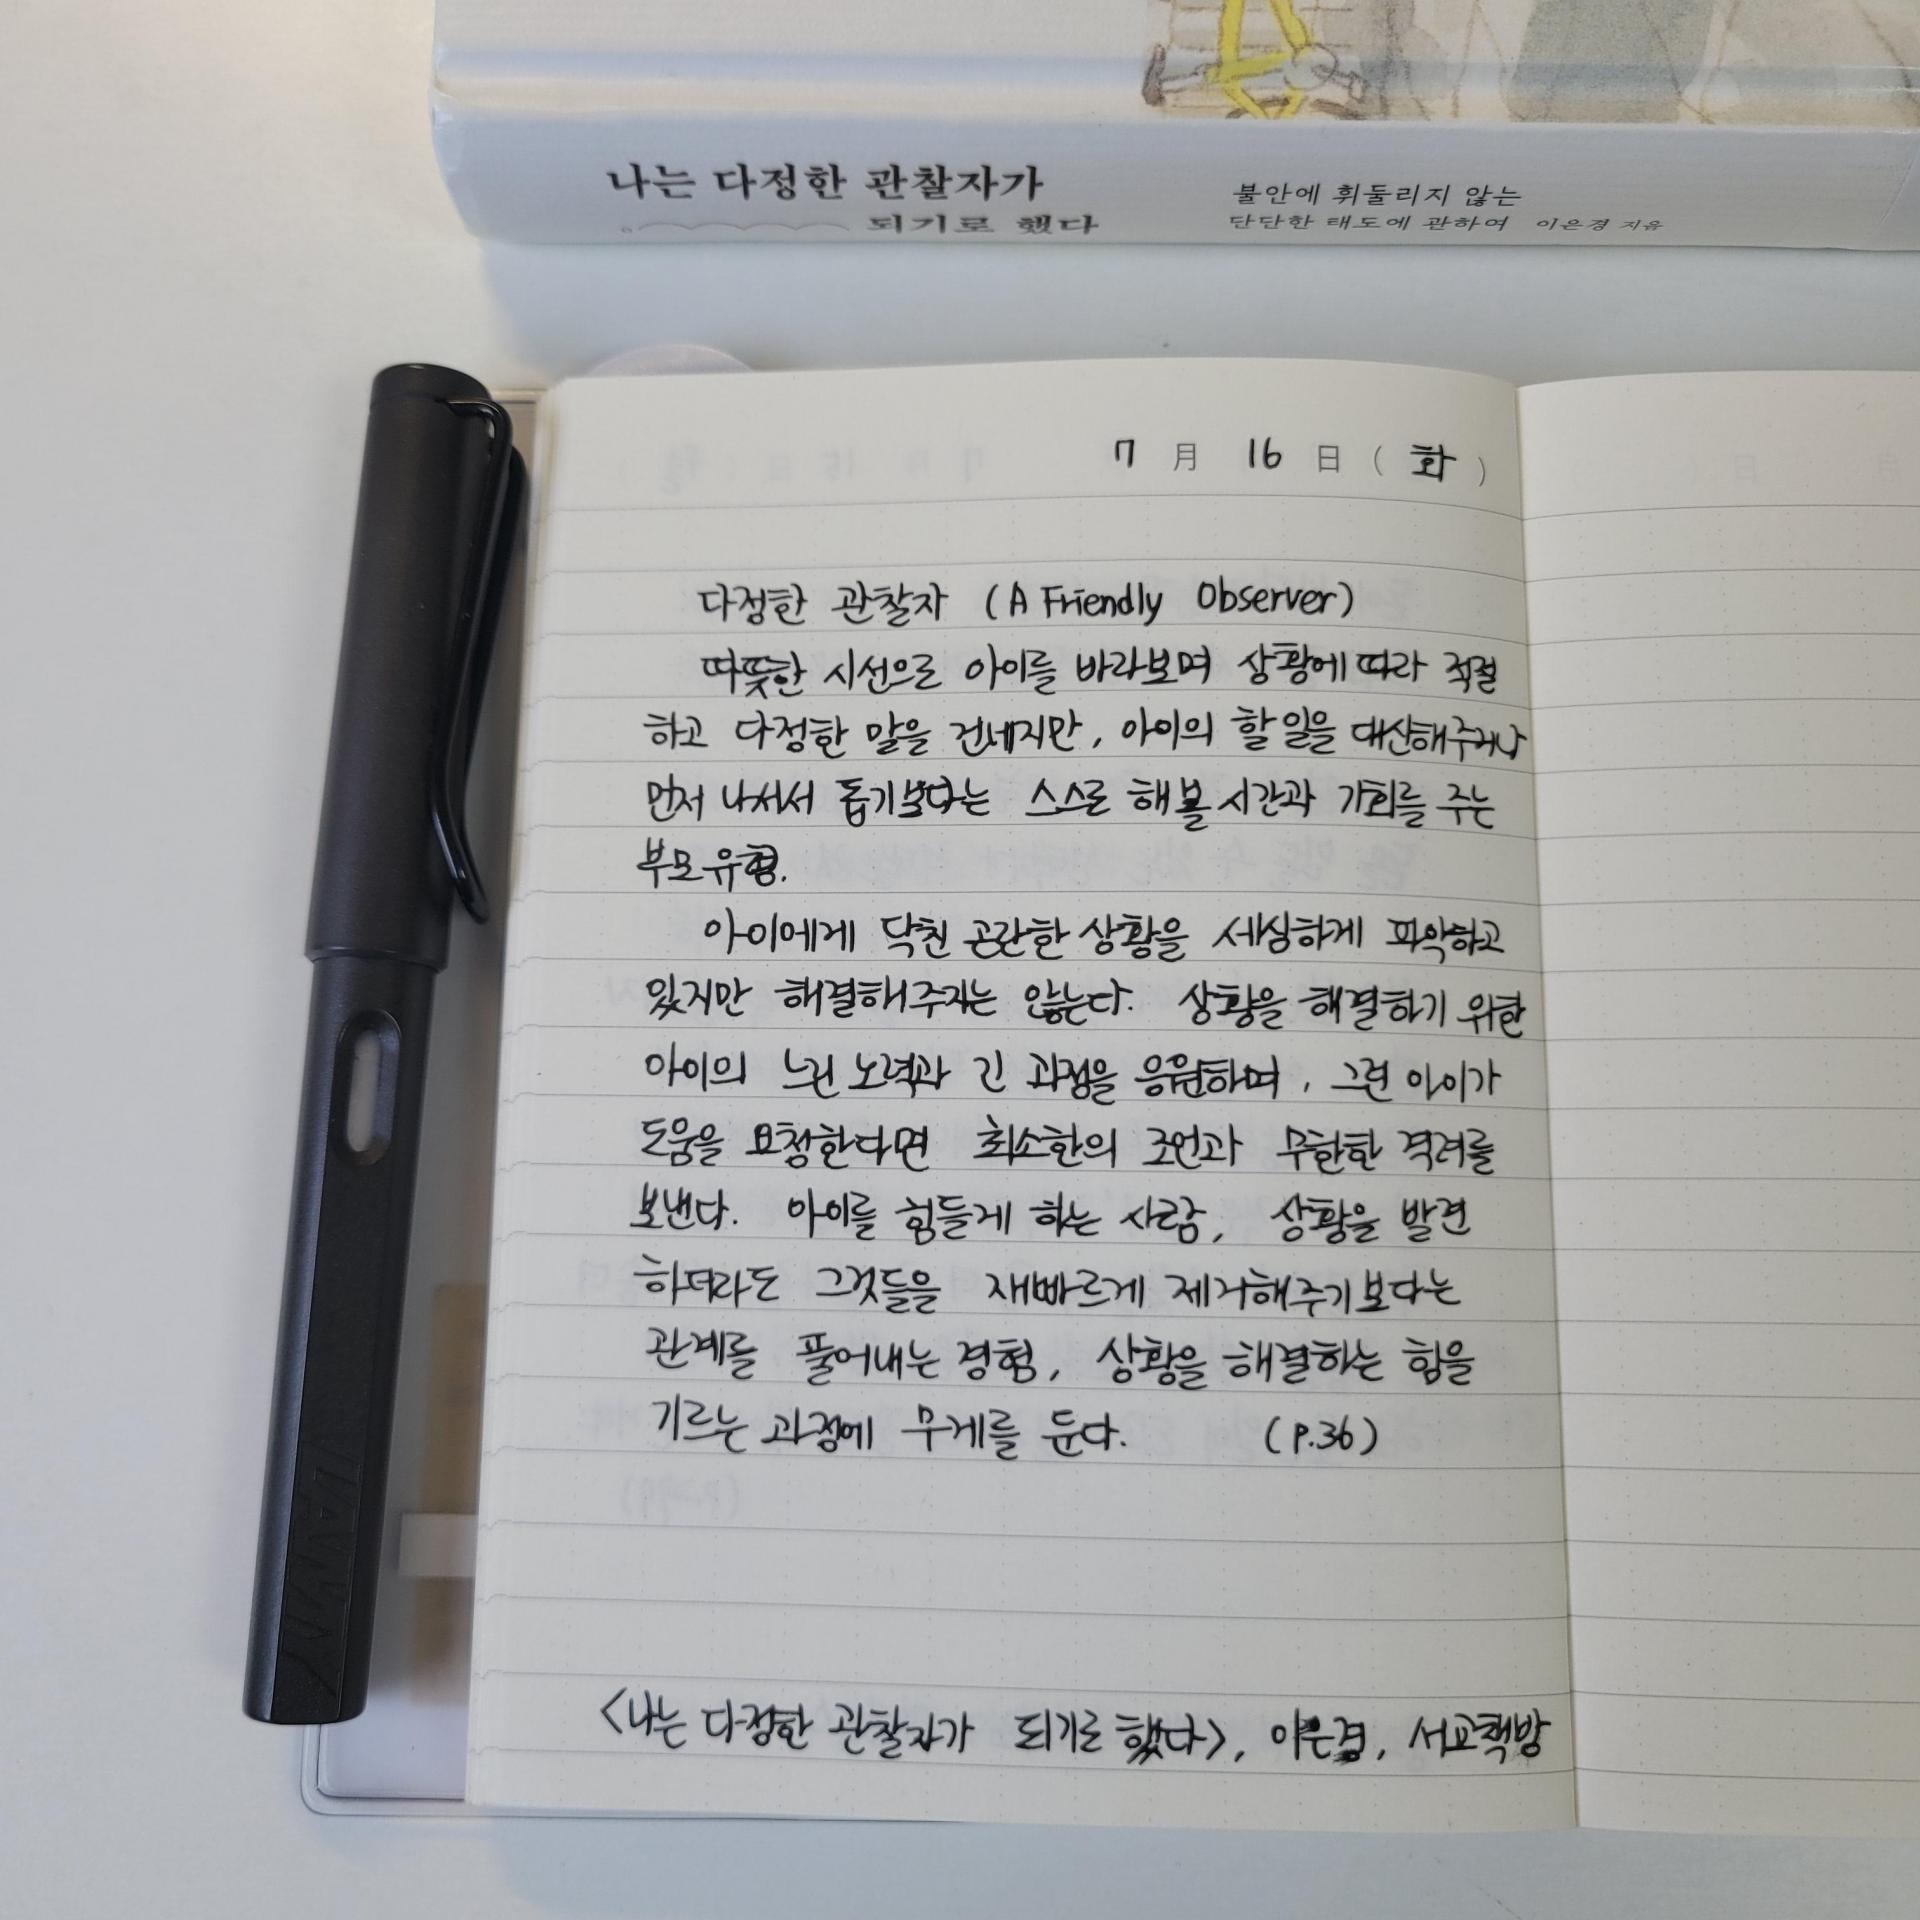 나는 다정한 관찰자가
되기로 했다
불안에 휘둘리지 않는
단단한 태도에 관하여 이은경 지음
7 月 16 日 ( 화 )
다정한 관찰자 (A Friendly Observer)
따뜻한 시선으로 아이를 바라보며 상황에 따라 적절
하고 다정한 말을 건네지만, 아이의 할 일을 대신해주거나
먼저 나서서 돕기보다는 스스로 해볼 시간과 기회를 주는
부모 유형.
아이에게 닥친 곤란한 상황을 세심하게 파악하고
있지만 해결해주지는 않는다. 상황을 해결하기 위한
아이의 느린 노력과 긴 과정을 응원하며, 그런 아이가
도움을 요청한다면 최소한의 조언과 무한한 격려를
보낸다. 아이를 힘들게 하는 사람, 상황을 발견
하더라도 그것들을 재빠르게 제거해주기보다는
관계를 풀어내는 경험, 상황을 해결하는 힘을
기르는 과정에 무게를 둔다. (p.36)
<나는 다정한 관찰자가 되기로 했다>, 이은경, 서교책방
LAMY